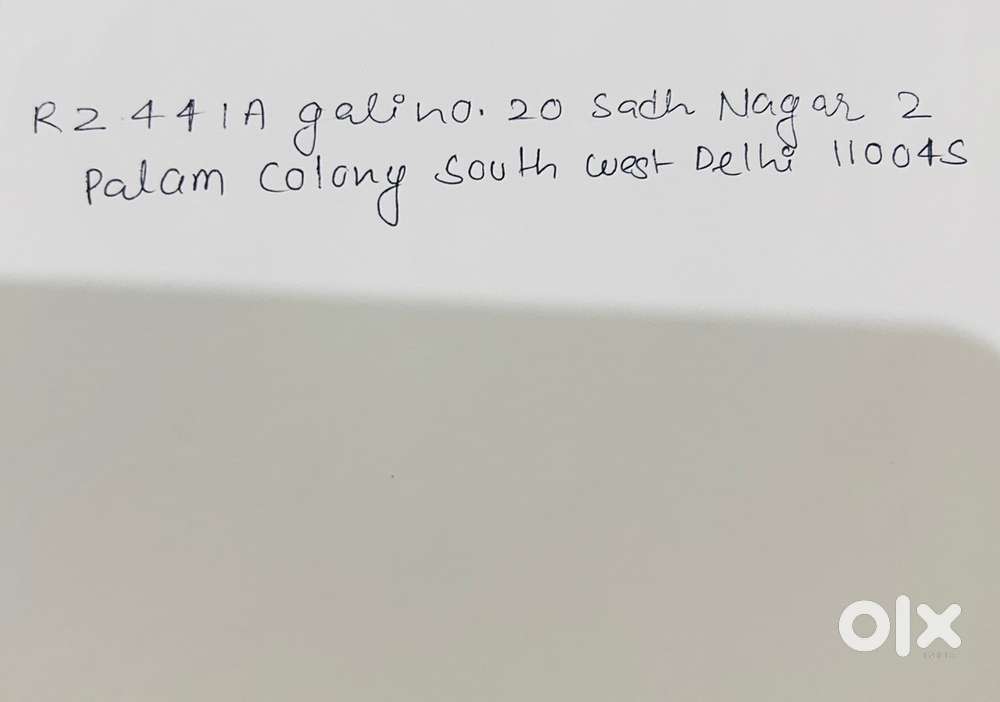 R2 441A gali no. 20 Sadh Nagar 2
Palam Colony South West Delhi 110045
olx